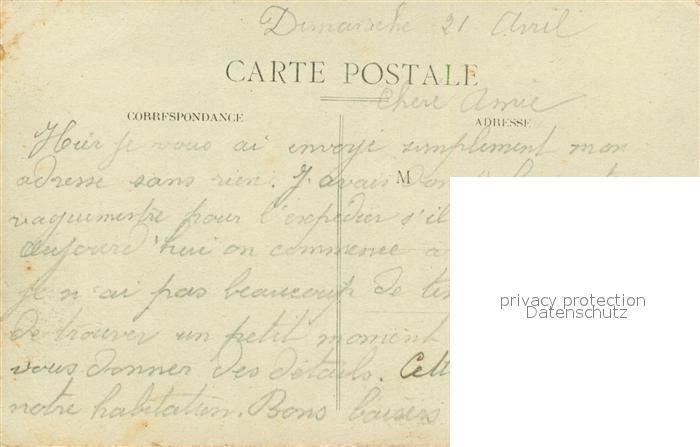 Dimanche 21 Avril
CARTE POSTALE
Chère Amie
CORRESPONDANCE
ADRESSE
Hier je vous ai envoyé simplement mon
adresse sans rien. J'avais
M
vaguemestre pour l'expédier s'il
aujourd'hui on commence a
je n'ai pas beaucoup de
de trouver un petit moment
vous donner des détails.
notre habitation. Bons baisers
privacy protection
Datenschutz